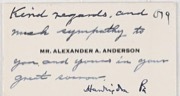 Kind regards, and
much sympathy to
MR. ALEXANDER A. ANDERSON
you and yours in your
great sorrow.